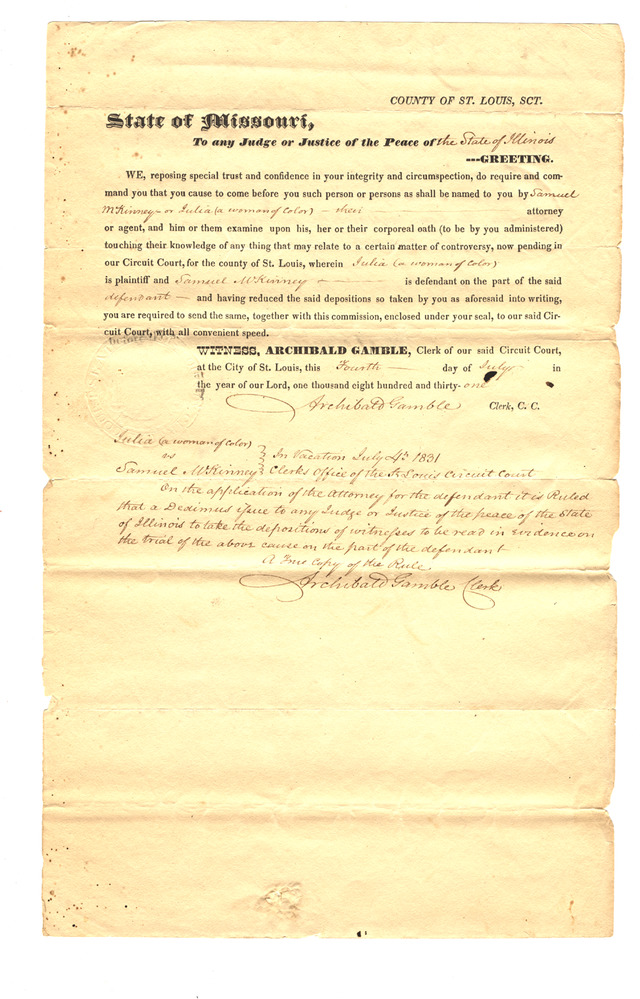 COUNTY OF ST. LOUIS, SCT.
State of Missouri,
To any Judge or Justice of the Peace of the State of Illinois
---GREETING.
WE, reposing special trust and confidence in your integrity and circumspection, do require and com-
mand you that you cause to come before you such person or persons as shall be named to you by Samuel
McKinney - or Julia (a woman of Color) - their attorney
or agent, and him or them examine upon his, her or their corporeal oath (to be by you administered)
touching their knowledge of any thing that may relate to a certain matter of controversy, now pending in
our Circuit Court, for the county of St. Louis, wherein Julia (a woman of Color)
is plaintiff and Samuel McKinney - is defendant on the part of the said
defendant - and having reduced the said depositions so taken by you as aforesaid into writing,
you are required to send the same, together with this commission, enclosed under your seal, to our said Cir-
cuit Court, with all convenient speed.
WITNESS, ARCHIBALD GAMBLE, Clerk of our said Circuit Court,
at the City of St. Louis, this Fourth - day of July in
the year of our Lord, one thousand eight hundred and thirty-one
Archibald Gamble Clerk, C. C.
Julia (a woman of Color)
vs } In Vacation July 4th 1831
Samuel McKinney } Clerks Office of the St Louis Circuit Court
On the application of the Attorney for the defendant it is Ruled
that a Dedimus issue to any Judge or Justice of the peace of the State
of Illinois to take the depositions of witnesses to be read in Evidence on
the trial of the above cause on the part of the defendant
A True Copy of the Rule
Archibald Gamble Clerk